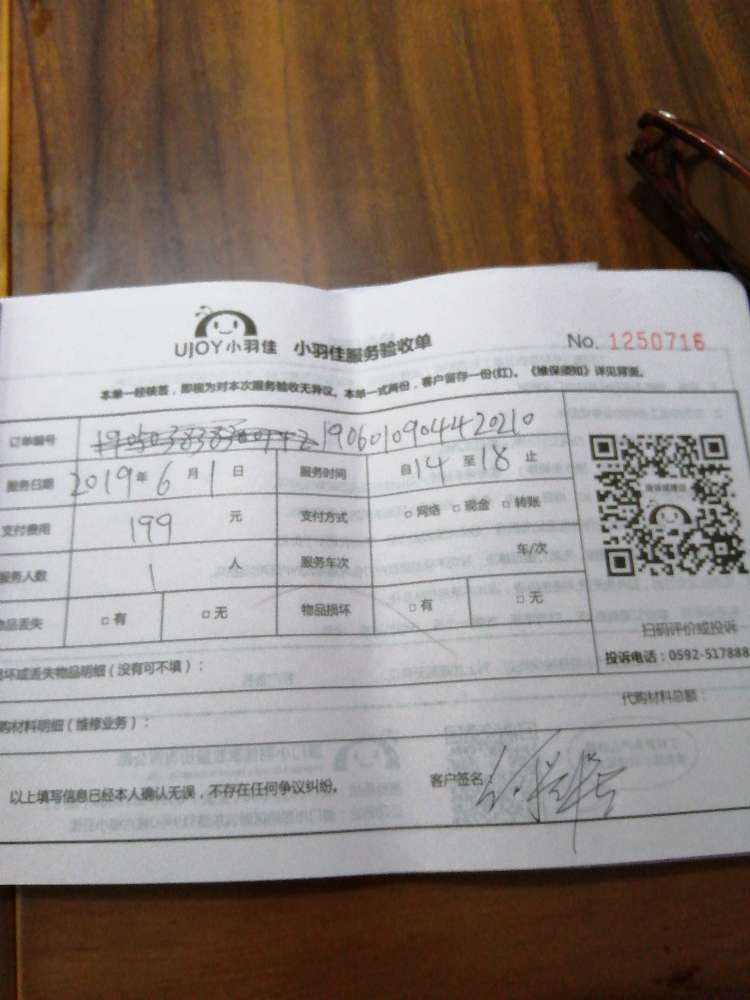 UJOY小羽佳 小羽佳服务验收单 No. 1250716
本单一经核签，即视为对本次服务验收无异议。本单一式两份，客户留存一份(红)。《维保须知》详见背面。
订单编号 1906010904420210
服务日期 2019年6月1日 服务时间 自14至18止
支付费用 199 元 支付方式 □网络 □现金 □转账
服务人数 1 人 服务车次 车/次
物品丢失 □有 □无 物品损坏 □有 □无
扫码评价或投诉
投诉电话：0592-517888
坏或丢失物品明细（没有可不填）：
代购材料总额：
购材料明细（维修业务）：
以上填写信息已经本人确认无误，不存在任何争议纠纷。 客户签名：